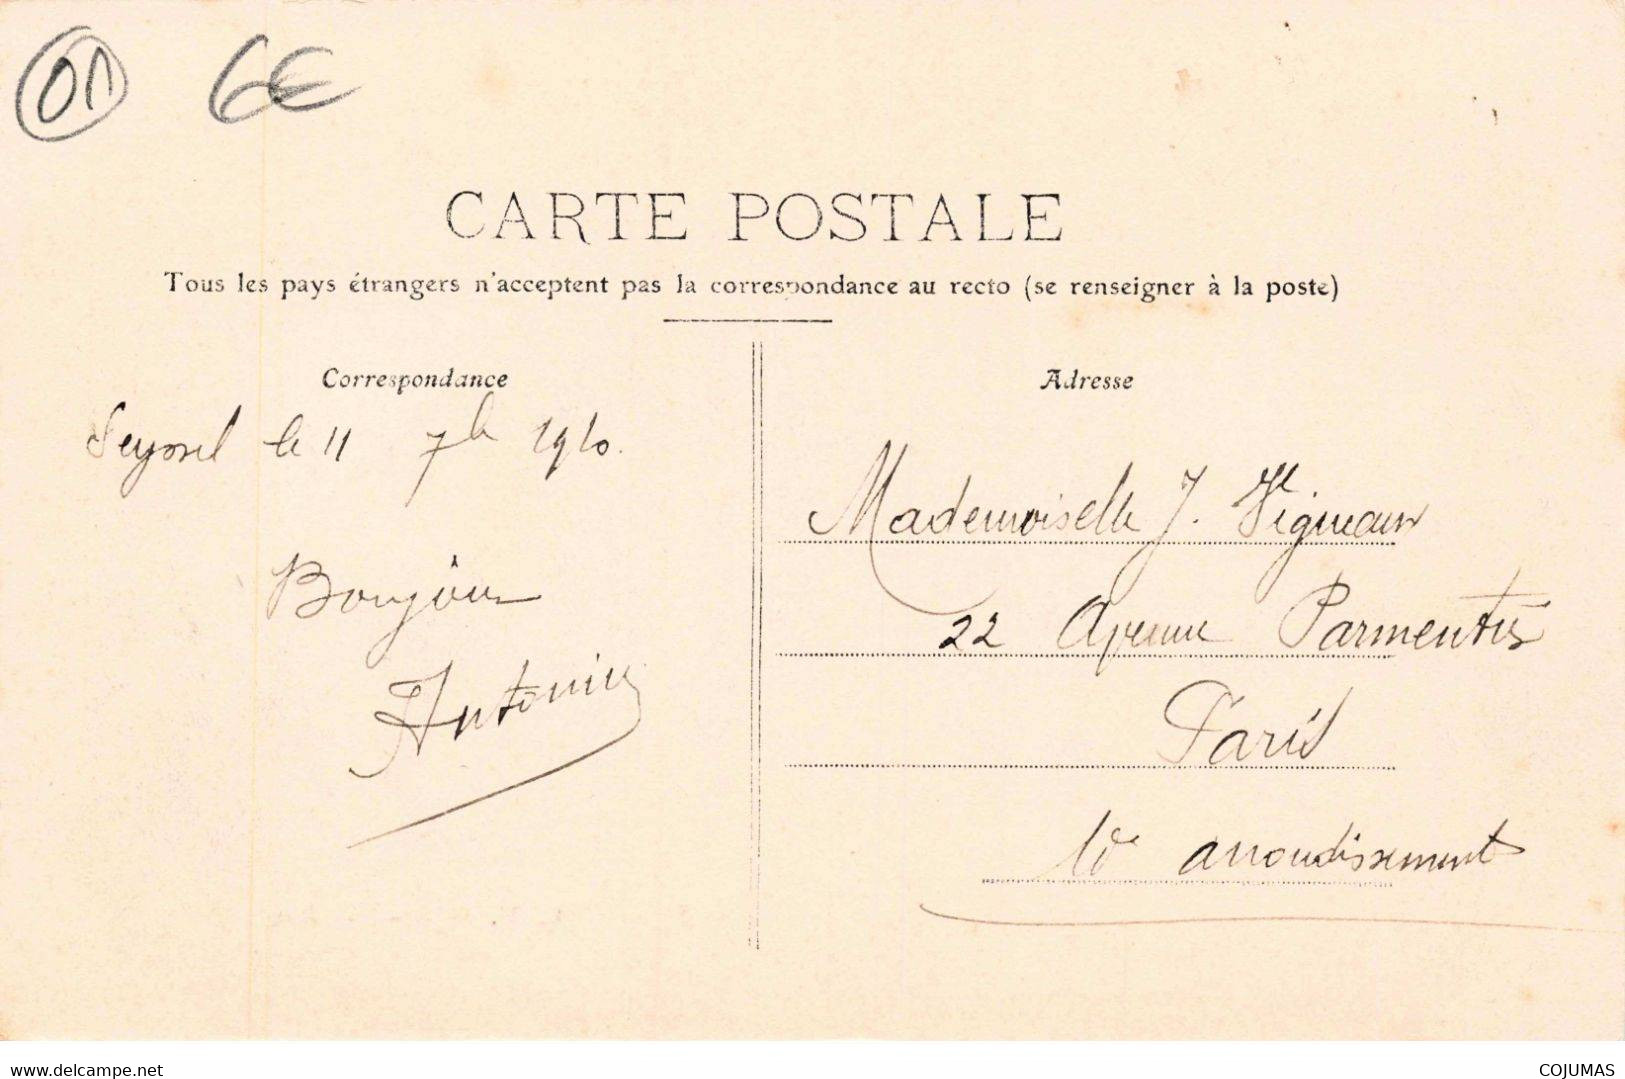 01 6€
CARTE POSTALE
Tous les pays étrangers n'acceptent pas la correspondance au recto (se renseigner à la poste)
Correspondance
Adresse
Seyssel le 11 7bre 1910.
Bonjour
Antonin
Mademoiselle J. Vigneaux
22 Avenue Parmentier
Paris
arrondissement
www.delcampe.net
COJUMAS